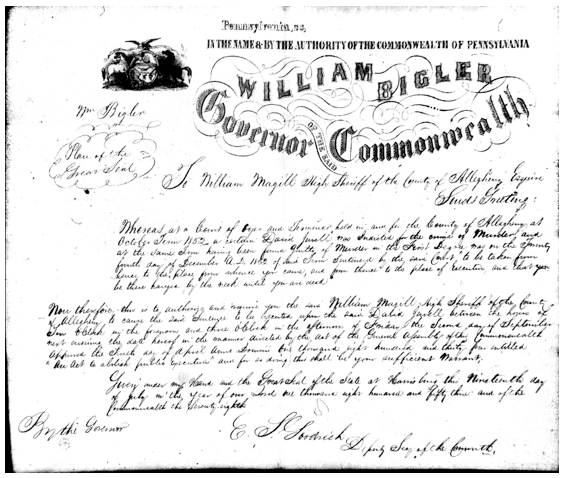 Pennsylvania, ss,
IN THE NAME & BY THE AUTHORITY OF THE COMMONWEALTH OF PENNSYLVANIA
WILLIAM BIGLER
Governor OF THE SAID Commonwealth
Wm Bigler
Place of the
Great Seal
To William Magill High Sheriff of the County of Allegheny Esquire
Sends Greeting:
Whereas, at a Court of Oyer and Terminer, held in and for the County of Allegheny at
October Term 1852 a certain David Jewell was Indicted for the crime of Murder, and
at the same Term having been found Guilty of Murder in the First Degree was on the Twenty
fourth day of December A.D. 1852 of said Term Sentenced by the said Court to be taken from
hence to the place from whence you came, and from thence to the place of execution and that you
be there hanged by the neck until you are dead
Now therefore, this is to authorize and require you the said William Magill High Sheriff of the County
of Allegheny to cause the said Sentence to be executed upon the said David Jewell between the hours of
Ten O'Clock in the forenoon and three O'Clock in the afternoon of Friday the Second day of September
next ensuing the date hereof in the manner directed by the Act of the General Assembly of the Commonwealth
approved the Tenth day of April Anno Domini One thousand eight hundred and thirty four entitled
"An Act to abolish public executions" and for so doing this shall be your sufficient Warrant.
Given under my Hand and the Great Seal of the State at Harrisburg this Nineteenth day
of July in the year of our Lord one thousand eight hundred and fifty three and of the
Commonwealth the Seventy eighth
By the Governor
E. S. Goodrich
Deputy Secy of the Commth.